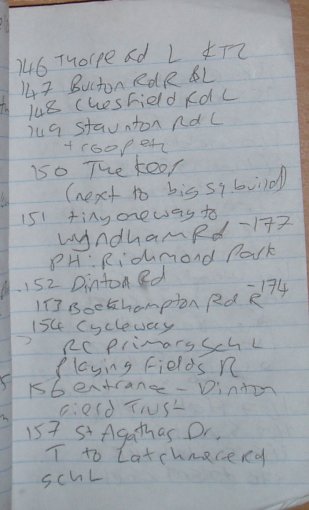 146 Thorpe Rd L & TR
147 Burton Rd R & L
148 Chesfield Rd L
149 Staunton Rd L
+ cooper
150 The keep
(next to big sq build)
151 tiny one way to
Wyndham Rd - 177
PH: Richmond Park
152 Dinton Rd
153 Bockhampton Rd R - 174
154 Cycleway
RC primary sch L
Playing Fields R
156 entrance - Dinton
Field Trust
157 St Agathas Dr.
T to Latchmere Rd
sch L